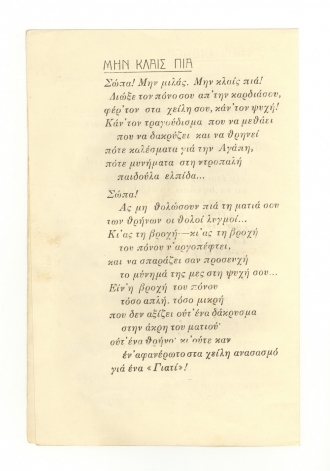 ΜΗΝ ΚΛΑΙΣ ΠΙΑ
Σώπα! Μην μιλάς. Μην κλαίς πιά!
Διώξε τον πόνο σου απ' την καρδιά σου,
φέρ' τον στα χείλη σου, κάν' τον ψυχή!
Κάν' τον τραγούδισμα που να μεθάει
που να δακρύζει και να θρηνεί
πότε καλέσματα γιά την Αγάπη,
πότε μηνύματα στη ντροπαλή
παιδούλα ελπίδα...
Σώπα!
Ας μη θολώσουν πιά τη ματιά σου
των θρήνων οι θολοί λυγμοί...
Κι' ας τη βροχή—κι' ας τη βροχή
του πόνου ν' αργοπέφτει,
και να σπαράζει σαν προσευχή
το μύνημά της μες στη ψυχή σου...
Είν' η βροχή του πόνου
τόσο απλή, τόσο μικρή
που δεν αξίζει ούτ' ένα δάκρυσμα
στην άκρη του ματιού·
ούτ' ένα θρήνο· κι' ούτε καν
έν' αφανέρωτο στα χείλη ανασασμό
γιά ένα «Γιατί»!